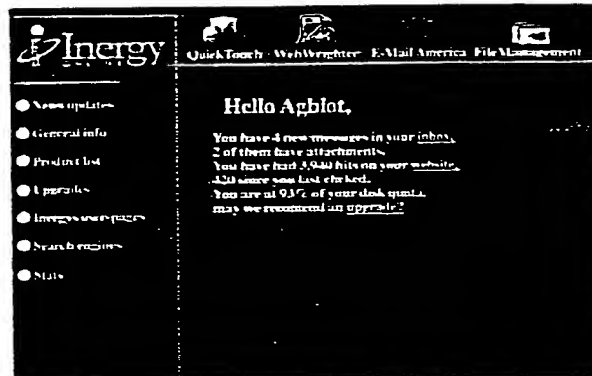 Inergy
QuickTouch WebWrighter E-Mail America FileManagement
News updates
General info
Product list
Upgrades
Inergy user pages
Search engines
Stats
Hello Agblot,
You have 4 new messages in your inbox,
2 of them have attachments.
You have had 3,940 hits on your website,
420 since you last checked.
You are at 93% of your disk quota,
may we recommend an upgrade?